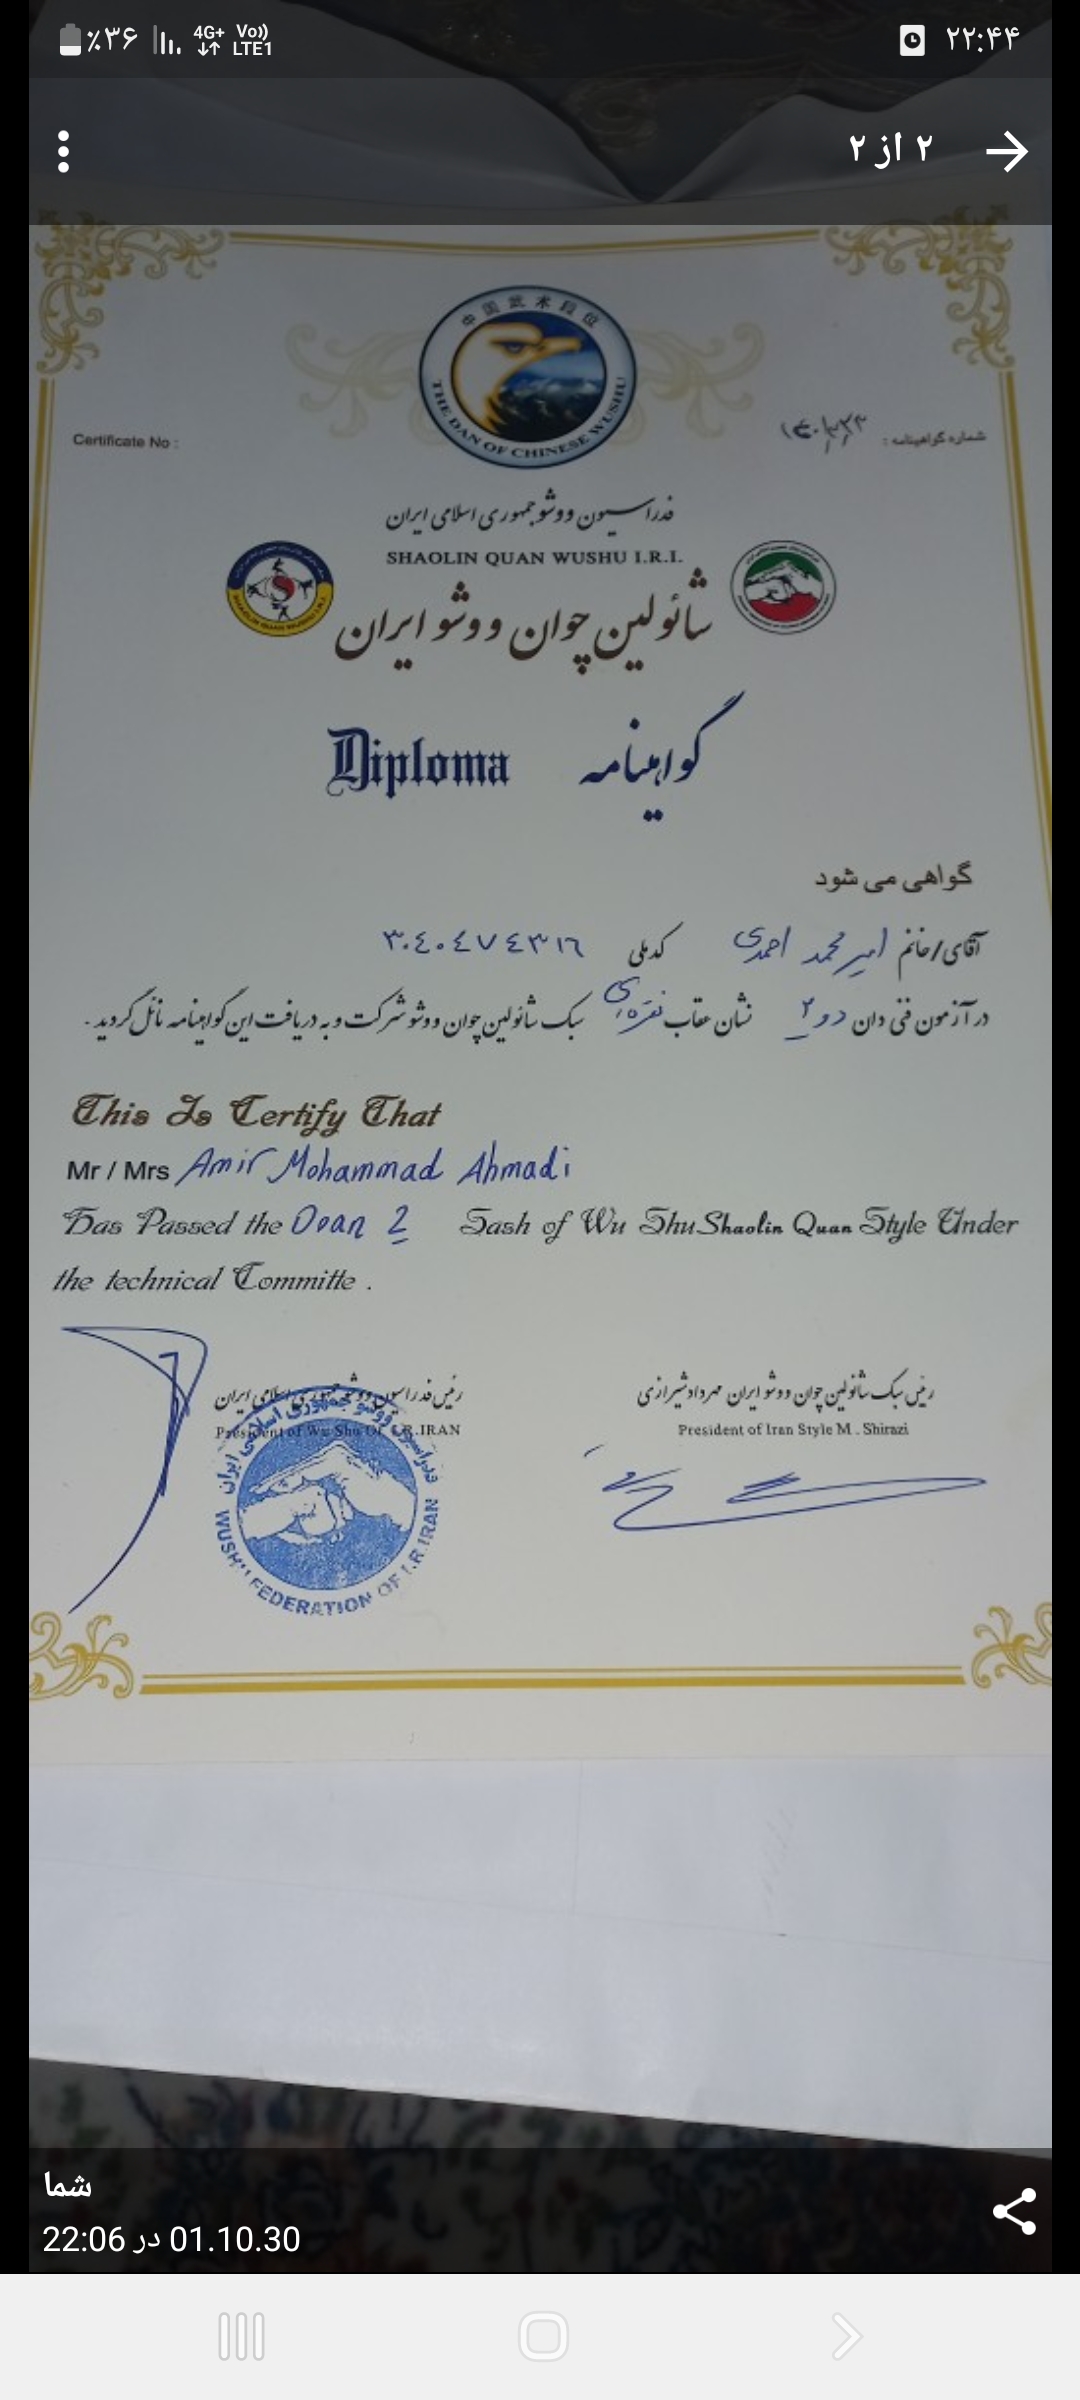 ٪۳۶ 4G+ Vo)) LTE1 ۲۲:۴۴
۲ از ۲
中国武术段位
THE DAN OF CHINESE WUSHU
Certificate No :
شماره گواهینامه :
فدراسیون ووشو جمهوری اسلامی ایران
SHAOLIN QUAN WUSHU I.R.I.
شائولین چوان ووشو ایران
Diploma گواهینامه
گواهی می شود
آقای/خانم امیرمحمد احمدی کدملی ۳۰۴۰۴۷۴۳۱۶
در آزمون فنی دان دو ۲ نشان عقاب نقره‌ای سبک شائولین چوان ووشو شرکت و به دریافت این گواهینامه نائل گردید .
This Is Certify That
Mr / Mrs Amir Mohammad Ahmadi
Has Passed the Doan 2 Sash of Wu Shu Shaolin Quan Style Under
the technical Committe .
رئیس فدراسیون ووشو جمهوری اسلامی ایران
President of Wu Shu Of I.R.IRAN
رئیس سبک شائولین چوان ووشو ایران مهرداد شیرازی
President of Iran Style M . Shirazi
فدراسیون ووشو جمهوری اسلامی ایران
WUSHU FEDERATION OF I.R.IRAN
شما
01.10.30 در 22:06